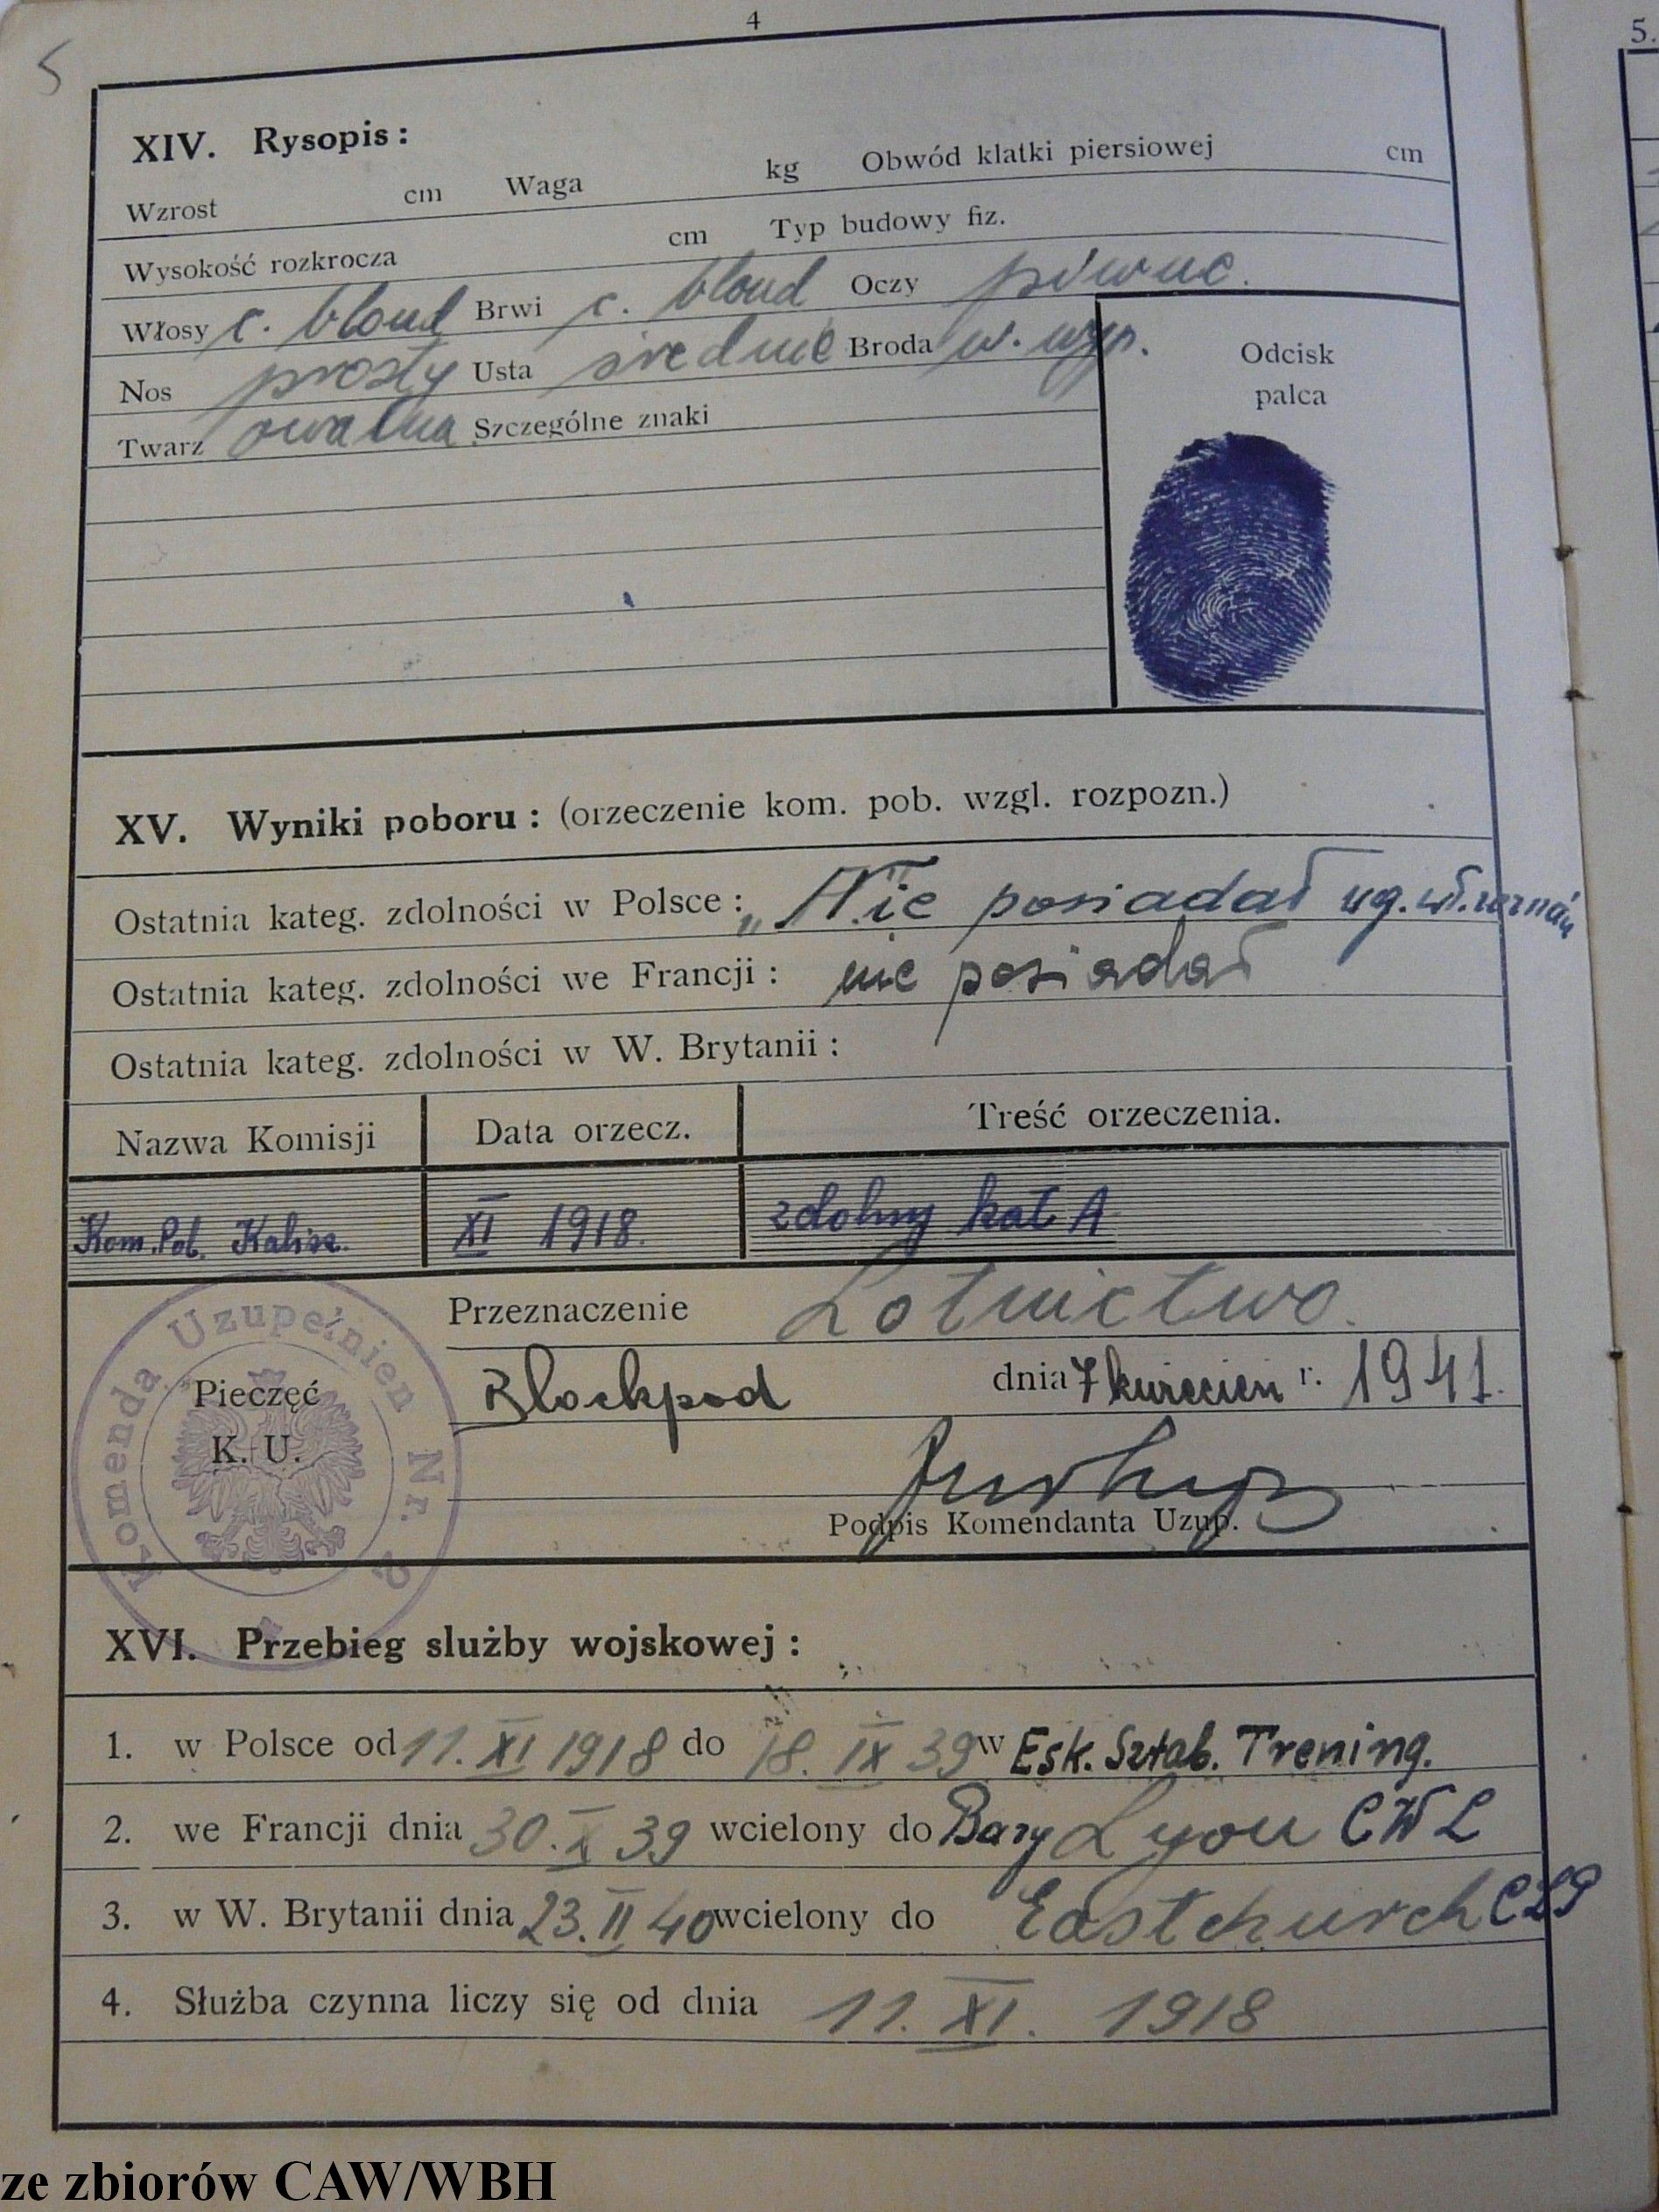 4
5
5.
XIV. Rysopis:
Wzrost cm Waga kg Obwód klatki piersiowej cm
Wysokość rozkrocza cm Typ budowy fiz.
Włosy c. blond Brwi c. blond Oczy piwne.
Nos prosty Usta średnie Broda w. wyp.
Twarz owalna Szczególne znaki
Odcisk
palca
XV. Wyniki poboru: (orzeczenie kom. pob. wzgl. rozpozn.)
Ostatnia kateg. zdolności w Polsce: „Nie posiadał wg. wł. zeznań
Ostatnia kateg. zdolności we Francji: nie posiadał
Ostatnia kateg. zdolności w W. Brytanii:
Nazwa Komisji Data orzecz. Treść orzeczenia.
Kom. Pob. Kalisz. XI 1918. zdolny kat A
Przeznaczenie Lotnictwo.
Komenda Uzupełnień Nr. 2
Pieczęć
K. U.
Blackpod dnia 7 kwiecień r. 1941.
Podpis Komendanta Uzup.
XVI. Przebieg służby wojskowej:
1. w Polsce od 11. XI 1918 do 18. IX 39 w Esk. Sztab. Trening.
2. we Francji dnia 30. X 39 wcielony do Bazy Lyon CWL
3. w W. Brytanii dnia 23. II 40 wcielony do Eastchurch
4. Służba czynna liczy się od dnia 11. XI. 1918
ze zbiorów CAW/WBH